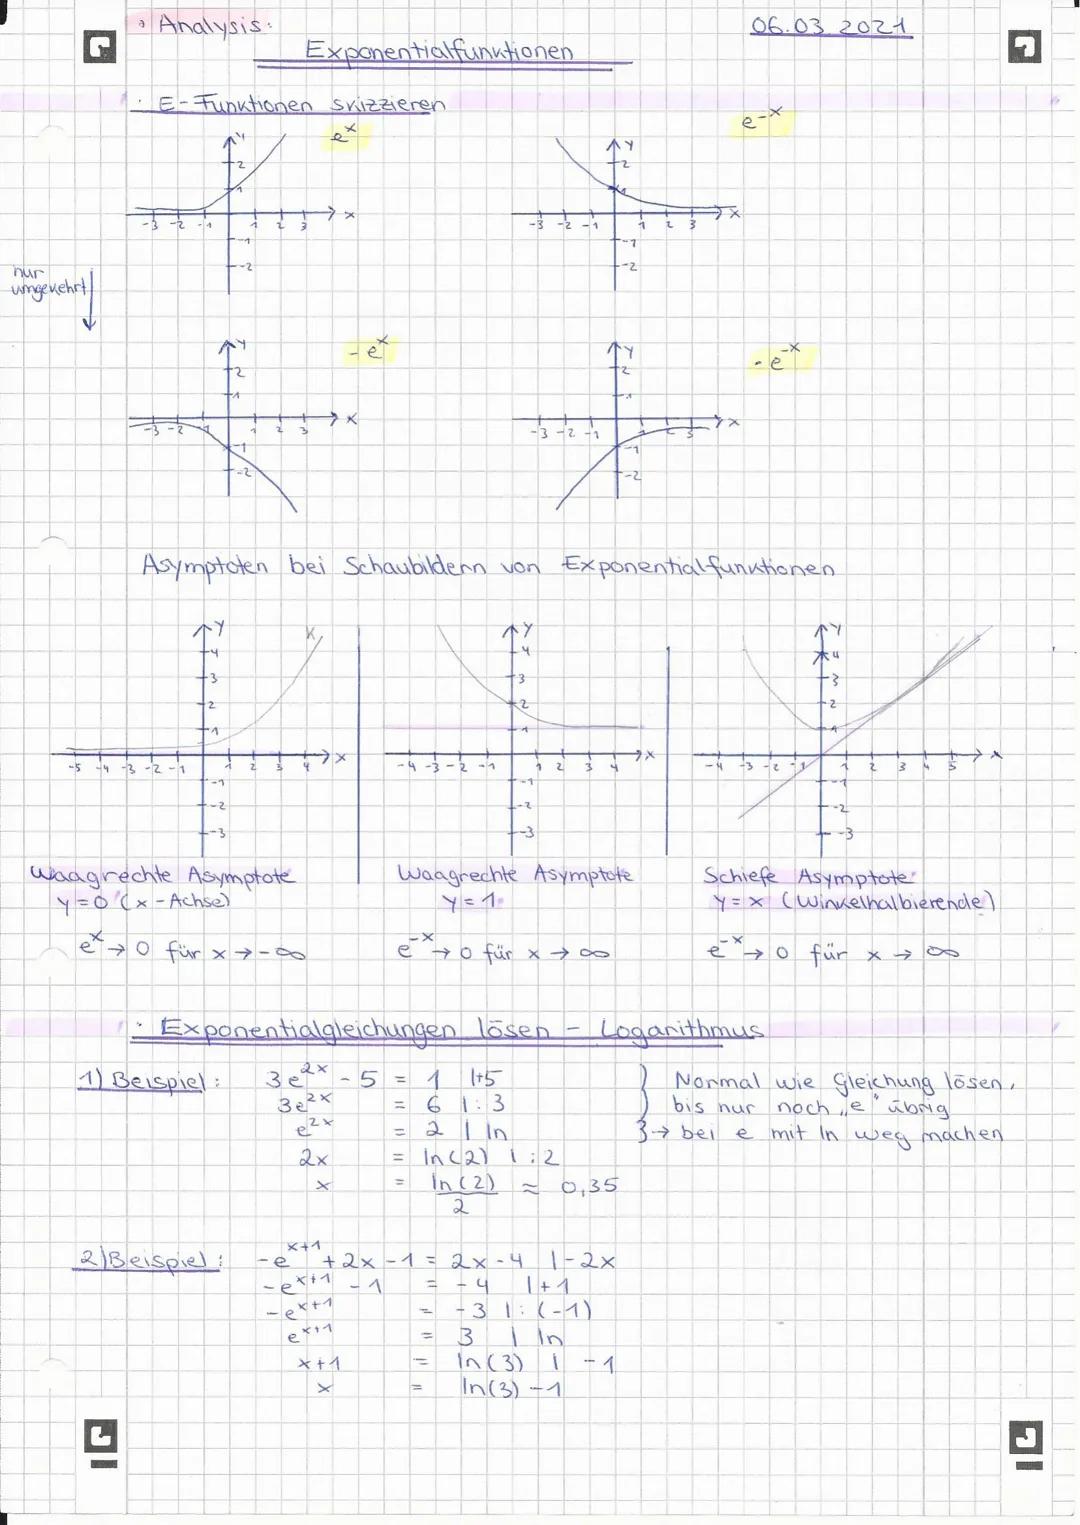 • Analysis:
06.03.2021
Exponentialfunktionen
• E-Funktionen skizzieren
e^x
e^-x
y
2
1
-3 -2 -1 1 2 3 x
-1
-2
y
2
1
-3 -2 -1 1 2 3 x
-1
-2
nur
umgekehrt
- e^x
- e^-x
y
2
1
-3 -2 -1 1 2 3 x
-1
-2
y
2
1
-3 -2 -1 1 2 3 x
-1
-2
Asymptoten bei Schaubildern von Exponentialfunktionen
y K
4
3
2
1
-5 -4 -3 -2 -1 1 2 3 4 x
-1
-2
-3
y
4
3
2
1
-4 -3 -2 -1 1 2 3 4 x
-1
-2
-3
y
4
3
2
1
-4 -3 -2 -1 1 2 3 4 5 x
-1
-2
-3
Waagrechte Asymptote
y = 0 (x-Achse)
e^x → 0 für x → -∞
Waagrechte Asymptote
y = 1
e^-x → 0 für x → ∞
Schiefe Asymptote:
y = x (Winkelhalbierende)
e^-x → 0 für x → ∞
• Exponentialgleichungen lösen - Logarithmus
1) Beispiel: 3e^2x - 5 = 1 |+5
3e^2x = 6 |:3
e^2x = 2 | ln
2x = ln(2) | :2
x = ln(2)/2 ≈ 0,35
Normal wie Gleichung lösen,
bis nur noch „e" übrig
→ bei e mit ln weg machen
2) Beispiel: -e^x+1 + 2x - 1 = 2x - 4 |-2x
-e^x+1 - 1 = -4 |+1
-e^x+1 = -3 |: (-1)
e^x+1 = 3 | ln
x+1 = ln(3) | -1
x = ln(3) - 1